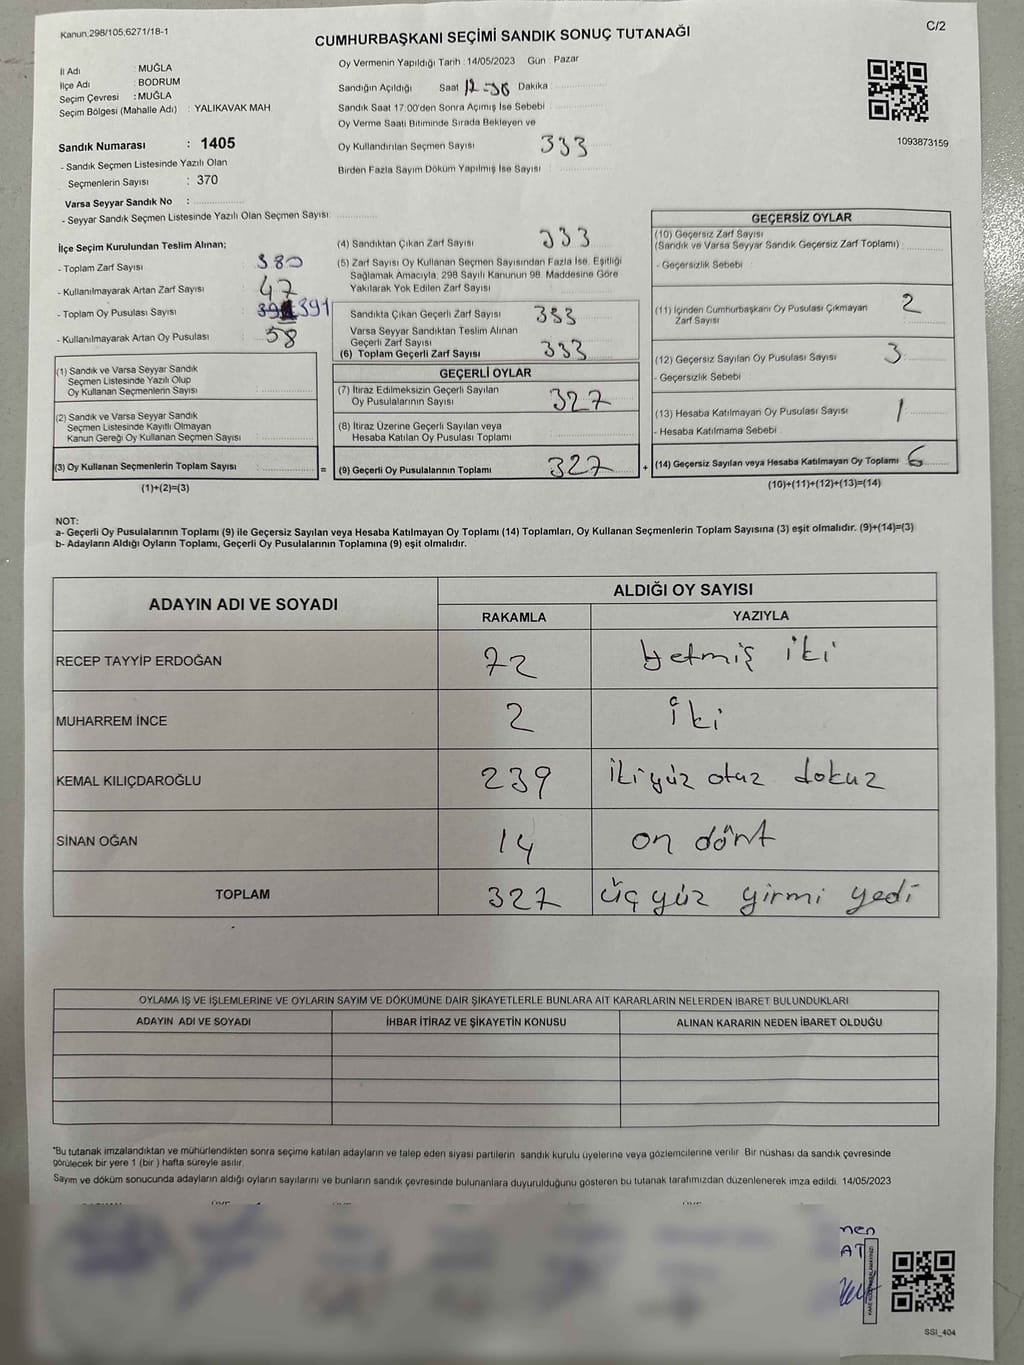 Kanun,298/105,6271/18-1
C/2
CUMHURBAŞKANI SEÇİMİ SANDIK SONUÇ TUTANAĞI
İl Adı : MUĞLA
İlçe Adı : BODRUM
Seçim Çevresi : MUĞLA
Seçim Bölgesi (Mahalle Adı) : YALIKAVAK MAH
Sandık Numarası : 1405
- Sandık Seçmen Listesinde Yazılı Olan
Seçmenlerin Sayısı : 370
Varsa Seyyar Sandık No :
- Seyyar Sandık Seçmen Listesinde Yazılı Olan Seçmen Sayısı:
Oy Vermenin Yapıldığı Tarih : 14/05/2023 Gün : Pazar
Sandığın Açıldığı Saat Dakika
Sandık Saat 17:00'den Sonra Açımış İse Sebebi
Oy Verme Saati Bitiminde Sırada Bekleyen ve
Oy Kullandırılan Seçmen Sayısı 333
Birden Fazla Sayım Döküm Yapılmış İse Sayısı :
1093873159
İlçe Seçim Kurulundan Teslim Alınan;
- Toplam Zarf Sayısı 380
- Kullanılmayarak Artan Zarf Sayısı 47
- Toplam Oy Pusulası Sayısı 391
- Kullanılmayarak Artan Oy Pusulası 58
(1) Sandık ve Varsa Seyyar Sandık
Seçmen Listesinde Yazılı Olup
Oy Kullanan Seçmenlerin Sayısı :
(2) Sandık ve Varsa Seyyar Sandık
Seçmen Listesinde Kayıtlı Olmayan
Kanun Gereği Oy Kullanan Seçmen Sayısı :
(3) Oy Kullanan Seçmenlerin Toplam Sayısı :
(1)+(2)=(3)
=
(4) Sandıktan Çıkan Zarf Sayısı 333
(5) Zarf Sayısı Oy Kullanan Seçmen Sayısından Fazla İse, Eşitliği
Sağlamak Amacıyla, 298 Sayılı Kanunun 98. Maddesine Göre
Yakılarak Yok Edilen Zarf Sayısı
Sandıkta Çıkan Geçerli Zarf Sayısı 333
Varsa Seyyar Sandıktan Teslim Alınan
Geçerli Zarf Sayısı
(6) Toplam Geçerli Zarf Sayısı 333
GEÇERLİ OYLAR
(7) İtiraz Edilmeksizin Geçerli Sayılan
Oy Pusulalarının Sayısı 327
(8) İtiraz Üzerine Geçerli Sayılan veya
Hesaba Katılan Oy Pusulası Toplamı
(9) Geçerli Oy Pusulalarının Toplamı 327
+
GEÇERSİZ OYLAR
(10) Geçersiz Zarf Sayısı
(Sandık ve Varsa Seyyar Sandık Geçersiz Zarf Toplamı) :
- Geçersizlik Sebebi :
(11) İçinden Cumhurbaşkanı Oy Pusulası Çıkmayan
Zarf Sayısı 2
(12) Geçersiz Sayılan Oy Pusulası Sayısı 3
- Geçersizlik Sebebi :
(13) Hesaba Katılmayan Oy Pusulası Sayısı 1
- Hesaba Katılmama Sebebi :
(14) Geçersiz Sayılan veya Hesaba Katılmayan Oy Toplamı 6
(10)+(11)+(12)+(13)=(14)
NOT:
a- Geçerli Oy Pusulalarının Toplamı (9) ile Geçersiz Sayılan veya Hesaba Katılmayan Oy Toplamı (14) Toplamları, Oy Kullanan Seçmenlerin Toplam Sayısına (3) eşit olmalıdır. (9)+(14)=(3)
b- Adayların Aldığı Oyların Toplamı, Geçerli Oy Pusulalarının Toplamına (9) eşit olmalıdır.
ADAYIN ADI VE SOYADI
ALDIĞI OY SAYISI
RAKAMLA YAZIYLA
RECEP TAYYİP ERDOĞAN 72 yetmiş iki
MUHARREM İNCE 2 iki
KEMAL KILIÇDAROĞLU 239 ikiyüz otuz dokuz
SİNAN OĞAN 14 on dört
TOPLAM 327 üçyüz yirmi yedi
OYLAMA İŞ VE İŞLEMLERİNE VE OYLARIN SAYIM VE DÖKÜMÜNE DAİR ŞİKAYETLERLE BUNLARA AİT KARARLARIN NELERDEN İBARET BULUNDUKLARI
ADAYIN ADI VE SOYADI İHBAR İTİRAZ VE ŞİKAYETİN KONUSU ALINAN KARARIN NEDEN İBARET OLDUĞU
*Bu tutanak imzalandıktan ve mühürlendikten sonra seçime katılan adayların ve talep eden siyasi partilerin sandık kurulu üyelerine veya gözlemcilerine verilir. Bir nüshası da sandık çevresinde
görülecek bir yere 1 (bir ) hafta süreyle asılır.
Sayım ve döküm sonucunda adayların aldığı oyların sayılarını ve bunların sandık çevresinde bulunanlara duyurulduğunu gösteren bu tutanak tarafımızdan düzenlenerek imza edildi. 14/05/2023
nen
AT
SSI_404